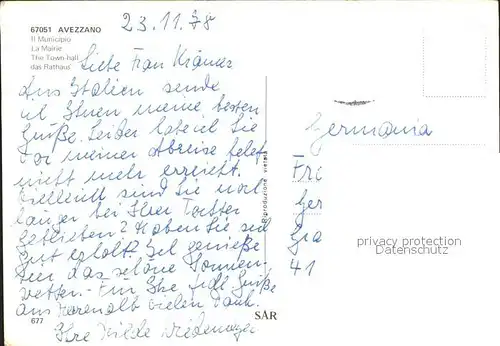 67051 AVEZZANO
Il Municipio
La Mairie
The Town-hall
das Rathaus
23.11.78
Liebe Frau Krämer
Aus Italien sende
ich Ihnen meine besten
Grüße. Leider habe ich Sie
vor meiner Abreise telef.
nicht mehr erreicht.
Vielleicht sind Sie noch
länger bei Ihrer Tochter
geblieben? Haben Sie sich
gut erholt? Ich genieße
hier das schöne Sonnen-
wetter. - Für Ihre Grüße
aus Herrenalb vielen Dank.
Ihre Hilde
677
SAR
Riproduzione vietata
Germania
Fr
Ger
Gra
41
privacy protection
Datenschutz